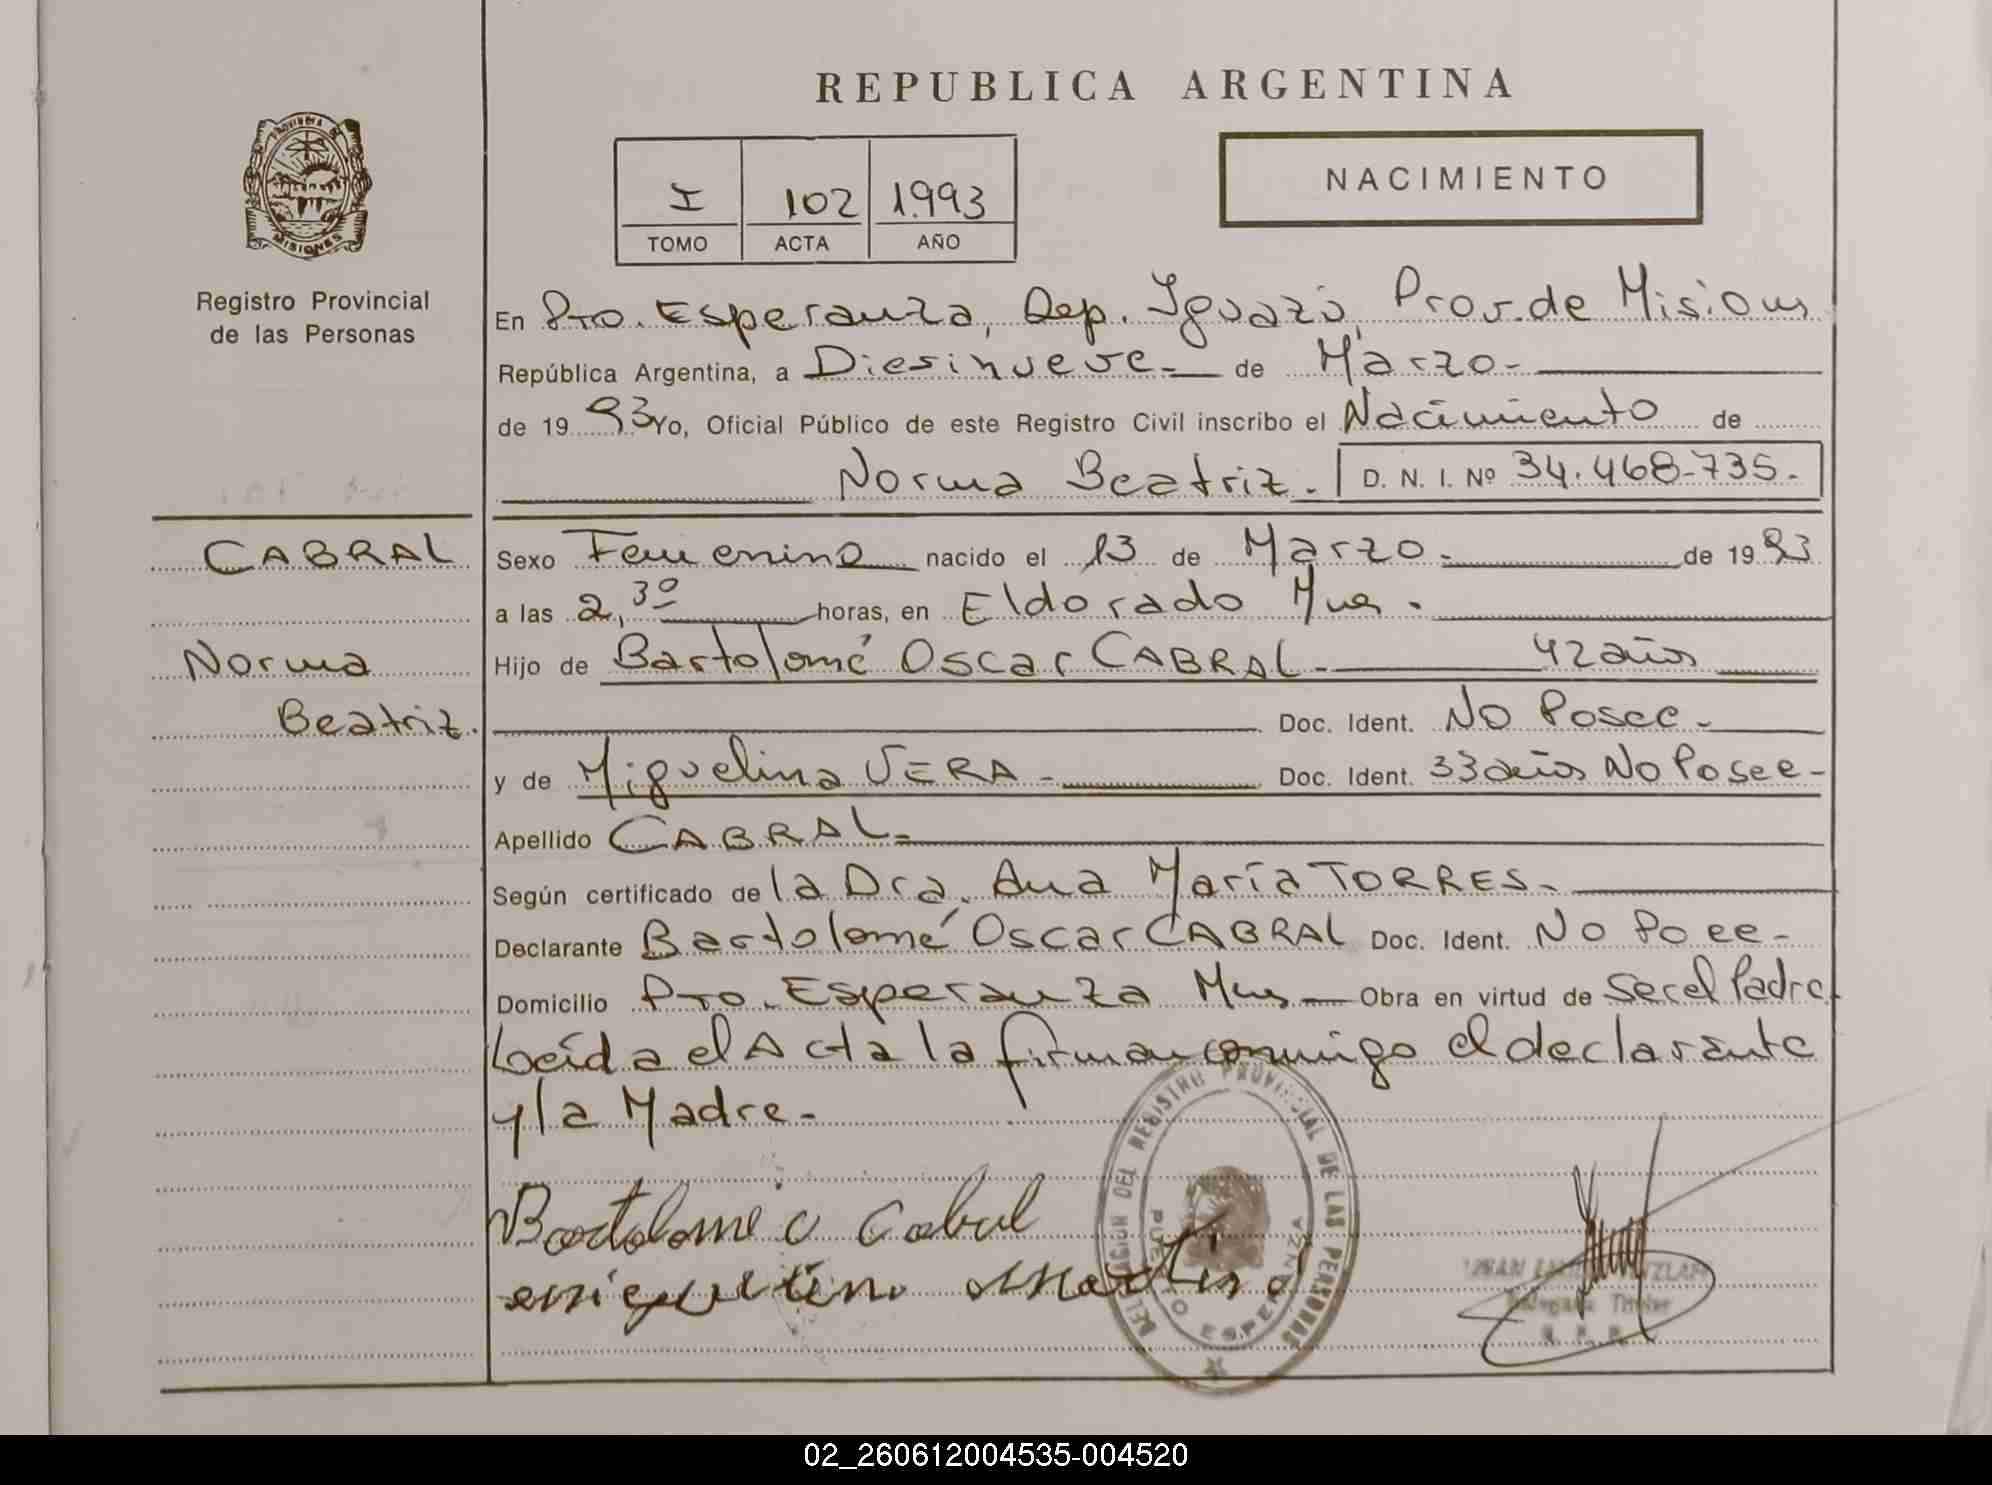 REPUBLICA ARGENTINA
PROVINCIA DE
MISIONES
Registro Provincial
de las Personas
I 102 1.993
TOMO ACTA AÑO
NACIMIENTO
En Pto. Esperanza, Dep. Iguazú, Prov. de Misiones
República Argentina, a Diesinueve de Marzo
de 1993 Yo, Oficial Público de este Registro Civil inscribo el Nacimiento de
Norma Beatriz. D. N. I. Nº 34.468-735.
CABRAL
Norma
Beatriz.
Sexo Femenino nacido el 13 de Marzo de 1993
a las 2,30 horas, en Eldorado Mnes.
Hijo de Bartolomé Oscar CABRAL 42 años
Doc. Ident. No Posee
y de Miguelina VERA Doc. Ident. 33 años No Posee
Apellido CABRAL
Según certificado de la Dra. Ana María TORRES.
Declarante Bartolomé Oscar CABRAL Doc. Ident. No Poee
Domicilio Pto. Esperanza Mnes Obra en virtud de ser el Padre
Leída el Acta la firman conmigo el declarante
y la Madre.
Bartolome o Cabral
DELEGACION DEL REGISTRO PROVINCIAL DE LAS PERSONAS
PUERTO ESPERANZA
Delegada Titular
02_260612004535-004520